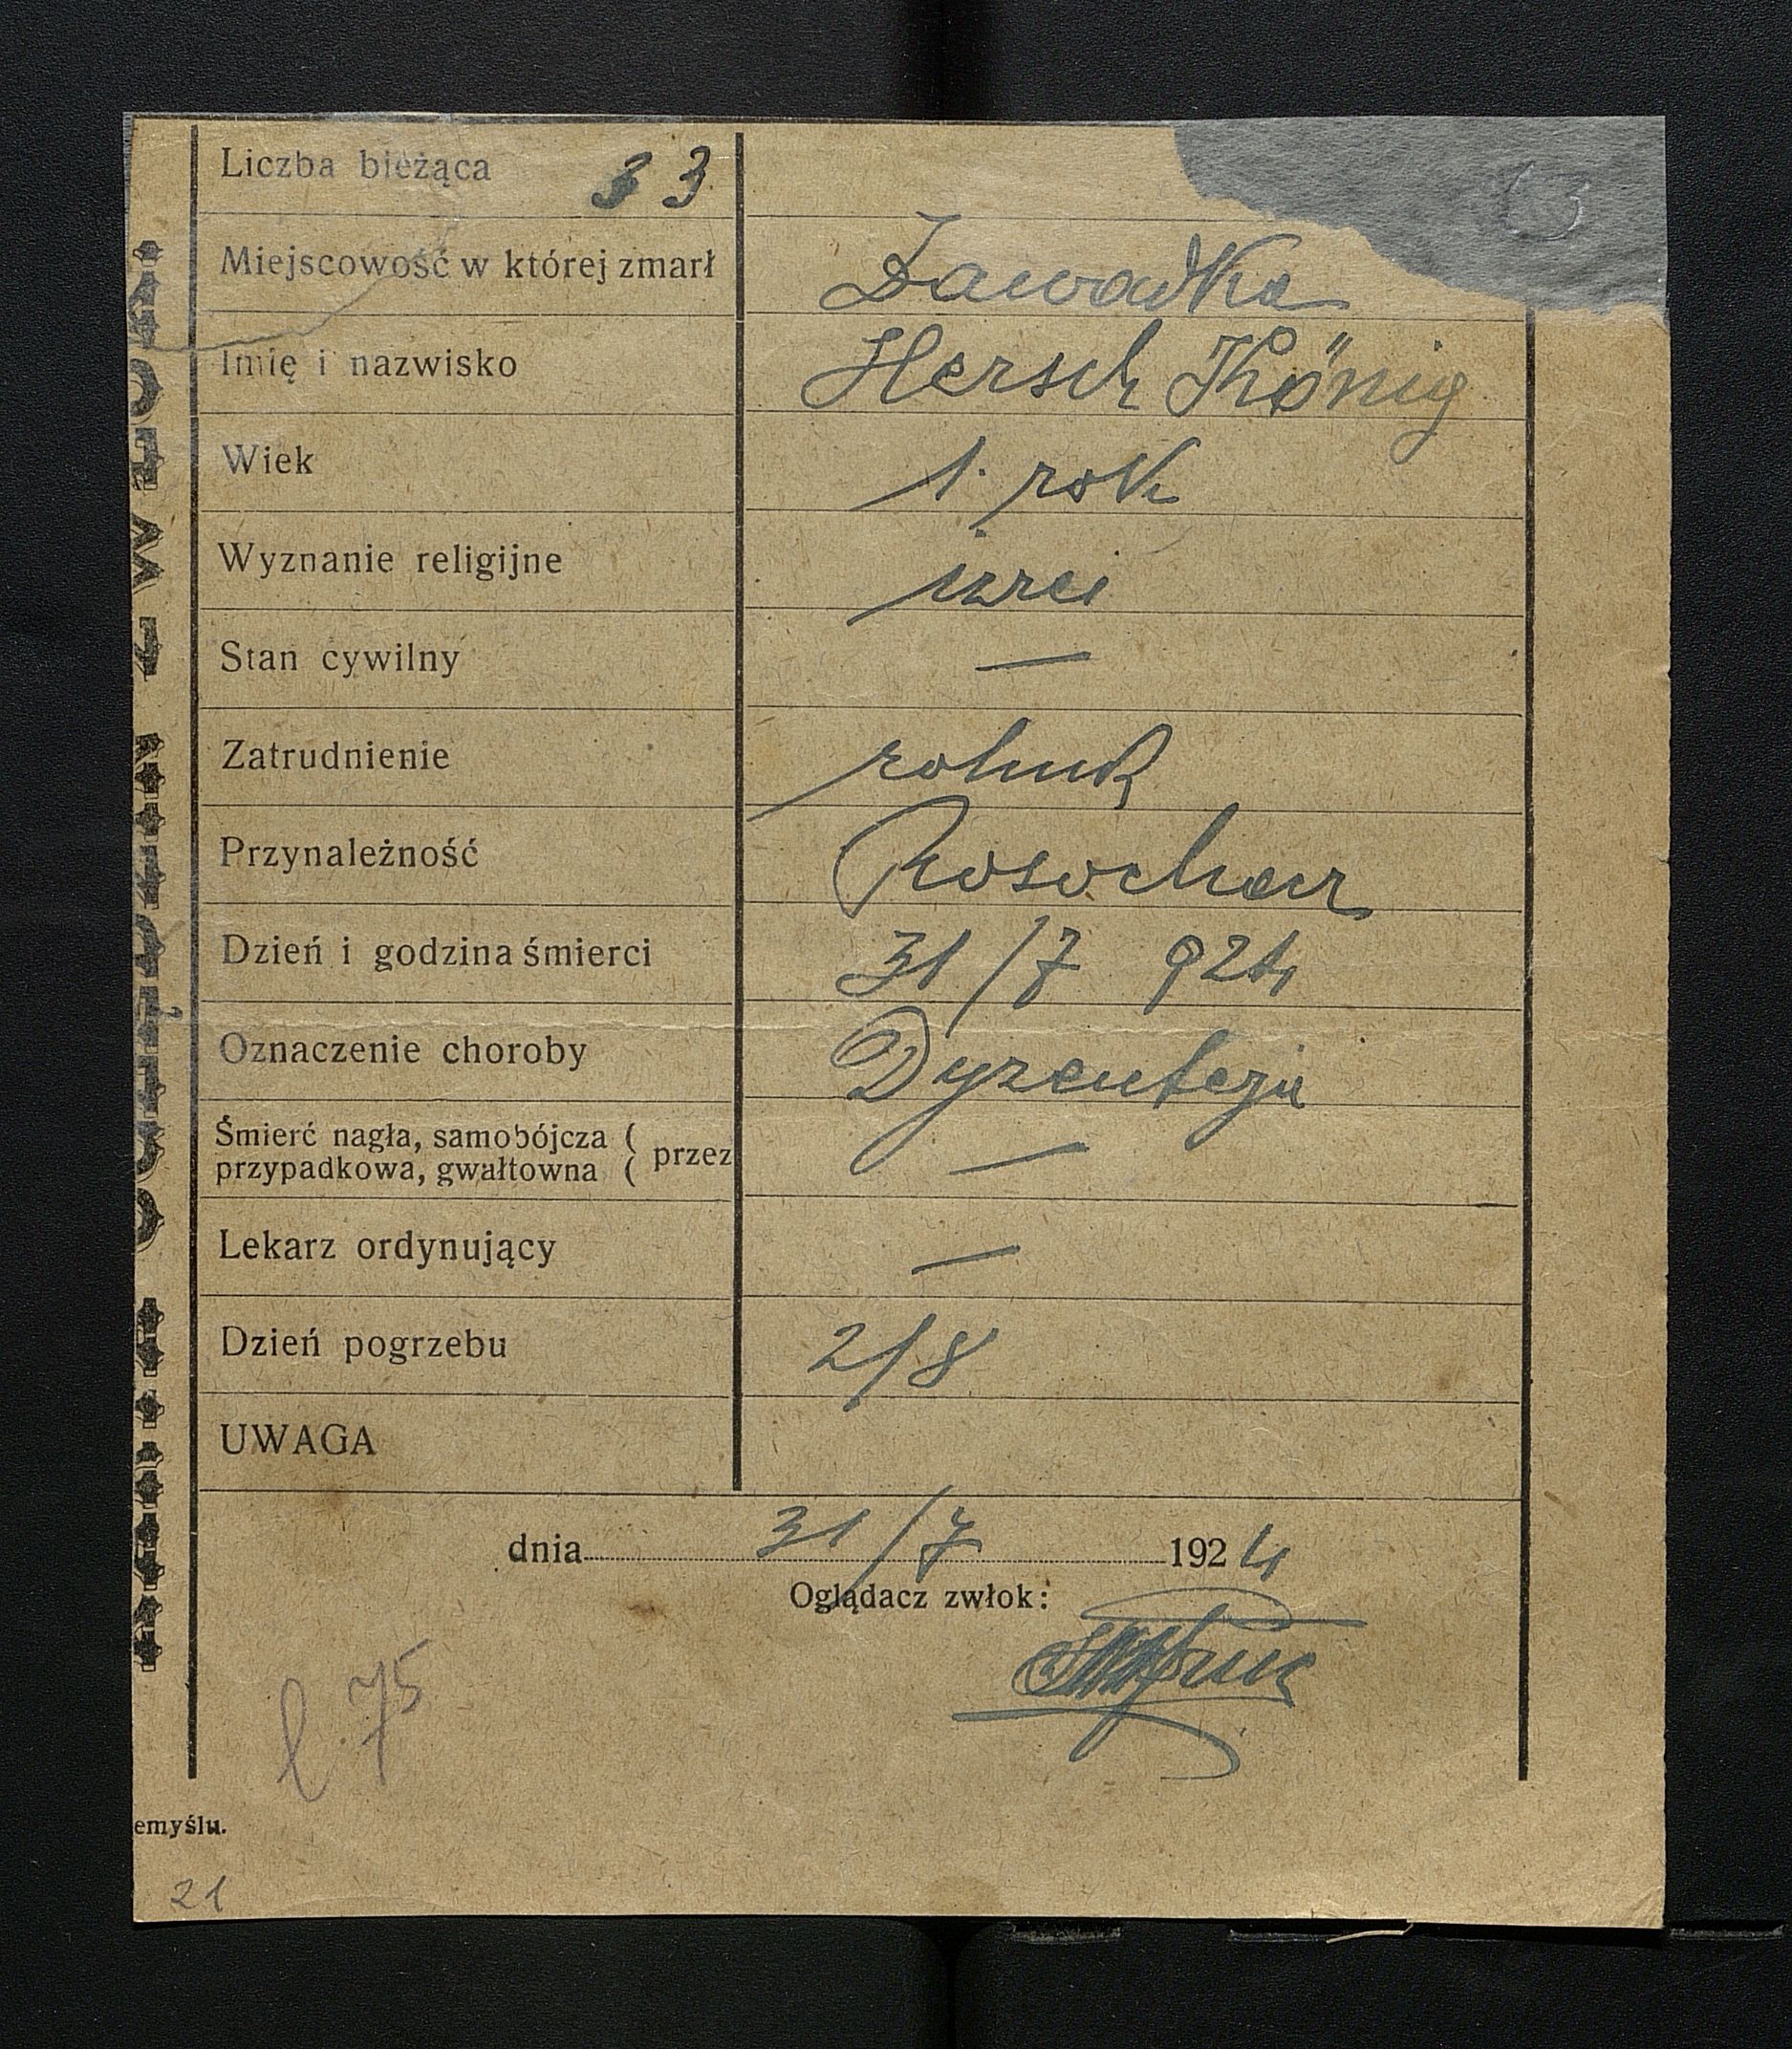 Liczba bieżąca 33
Miejscowość w której zmarł Zawadka
Imię i nazwisko Hersch König
Wiek 1. rok
Wyznanie religijne izrei
Stan cywilny —
Zatrudnienie rolnik
Przynależność Rosochacz
Dzień i godzina śmierci 31/7 924
Oznaczenie choroby Dyzenteja
Śmierć nagła, samobójcza (
przypadkowa, gwałtowna ( przez —
Lekarz ordynujący —
Dzień pogrzebu 2/8
UWAGA
dnia 31/7 1924
Oglądacz zwłok:
l 75
emyślu.
21